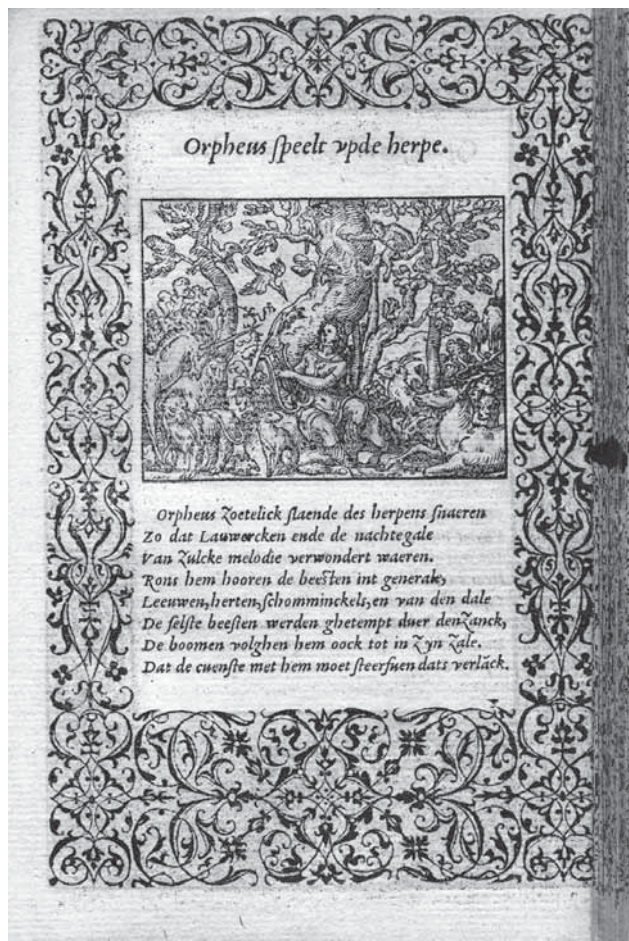 Orpheus ſpeelt vpde herpe.
Orpheus Zoetelick ſlaende des herpens ſnaeren
Zo dat Lauwercken ende de nachtegale
Van Zulcke melodie verwondert waeren.
Rons hem hooren de beeſten int generale,
Leeuwen, herten, ſchomminckels, en van den dale
De felſte beeſten werden ghetempt duer den Zanck,
De boomen volghen hem oock tot in Zyn Zale.
Dat de cuenſte met hem moet ſteerfuen dats verläck.